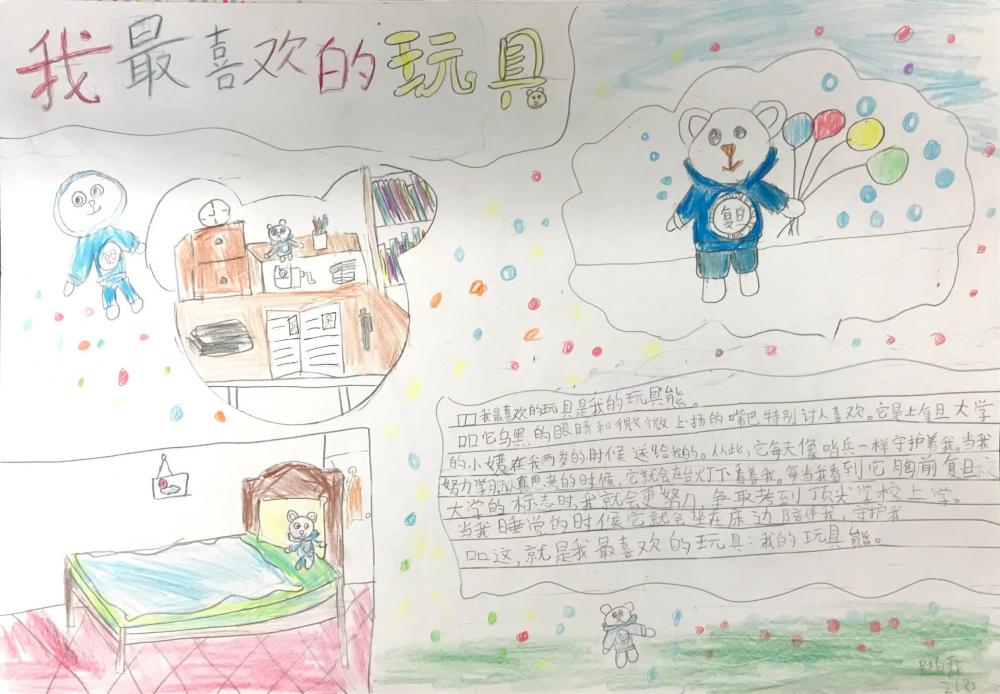 我最喜欢的玩具
复旦
我最喜欢的玩具是我的玩具熊。
它乌黑的眼睛和微微上扬的嘴巴特别讨人喜欢。它是上复旦大学
的小姨在我两岁的时候送给我的。从此,它每天像哨兵一样守护着我。当我
努力学习认真思考的时候,它就会在台灯下看着我。每当我看到它胸前复旦
大学的标志时,我就会更努力,争取考到顶尖学校上学。
当我睡觉的时候它就会坐在床边陪伴我,守护我
这,就是我最喜欢的玩具:我的玩具熊。